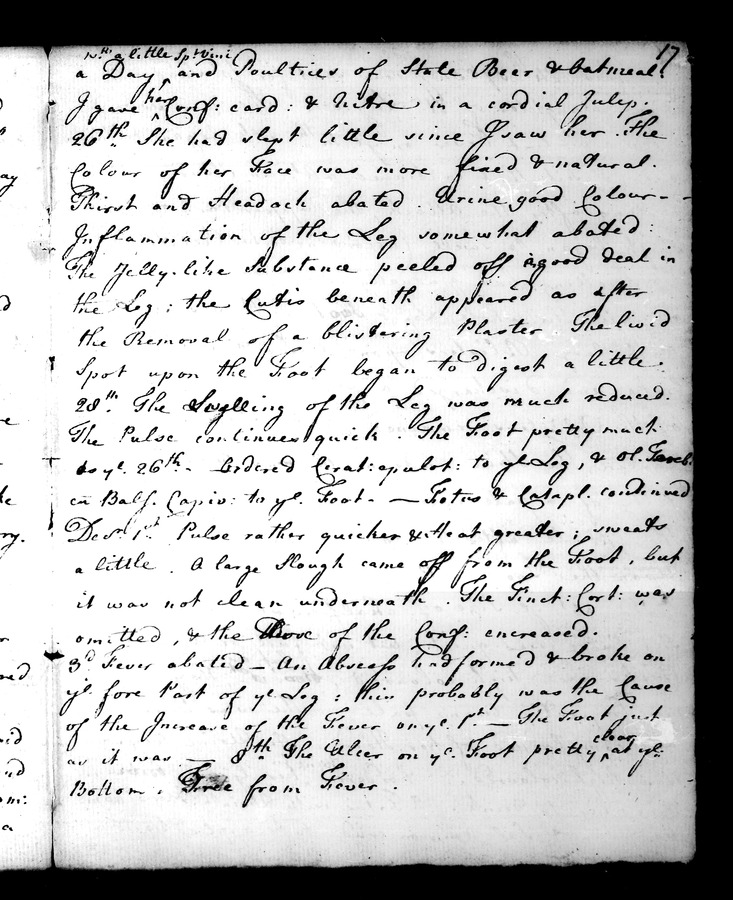 17
wth. a little Spt. Vini
a Day ^ and Poultices of Stale Beer & Oatmeal.
I gave ^ her Conf: card: & Nitre in a cordial Julep.
26th. She had slept little since I saw her. The
Colour of her Face was more fixed & natural.
Thirst and Headach abated. Urine good Colour - -
Inflammation of the Leg somewhat abated:
The Jelly-like Substance peeled off a good deal in
the Leg; the Cutis beneath appeared as after
the Removal of a blistering Plaster. The livid
Spot upon the Foot began to digest a little.
28th. The Swelling of the Leg was much reduced.
The Pulse continues quick. The Foot pretty much
as ye. 26th. - Ordered Cerat: epulot: to ye Leg, & Ol. Tereb.
cū Bals. Capiv: to ye. Foot. — Fotus & Catapl. continued
Decr. 1st. Pulse rather quicker & Heat greater; sweats
a little. A large Slough came off from the Foot, but
it was not clean underneath. The Tinct: Cort: was
omitted, & the Dose of the Conf: encreased.
3d Fever abated - An Abscess had formed & broke on
ye. fore Part of ye Leg: this probably was the Cause
of the Increase of the Fever on ye. 1st. — The Foot just
as it was. — 8th The Ulcer on ye. Foot pretty ^ clean at ye.
Bottom. Free from Fever.